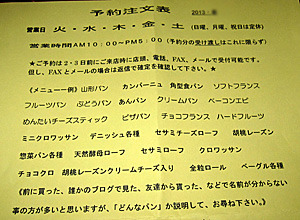 予約注文表 2013
営業日 火・水・木・金・土 (日曜、月曜、祝日は定休)
営業時間AM10:00~PM5:00 (予約分の受け渡しはこれに限らず)
★ご予約は2・3日前にご来店時に店頭、電話、FAX、メールで受付可能です。
但し、FAXとメールの場合は返信で確定を確認して下さい。
《メニュー例》山形パン カンパーニュ 角型食パン ソフトフランス
フルーツパン ぶどうパン あんパン クリームパン ベーコンエピ
めんたいチーズスティック ピザパン チョコフランス ハードフルーツ
ミニクロワッサン デニッシュ各種 セサミチーズローフ 胡桃レーズン
惣菜パン各種 天然酵母ローフ セサミローフ クロワッサン
チョコクロ 胡桃レーズンクリームチーズ入り 全粒ロール ベーグル各種
《前に買った、誰かのブログで見た、友達から貰った、などで名前が分からない
事の方が多いと思いますが、「どんなパン」か説明して、お尋ね下さい。》